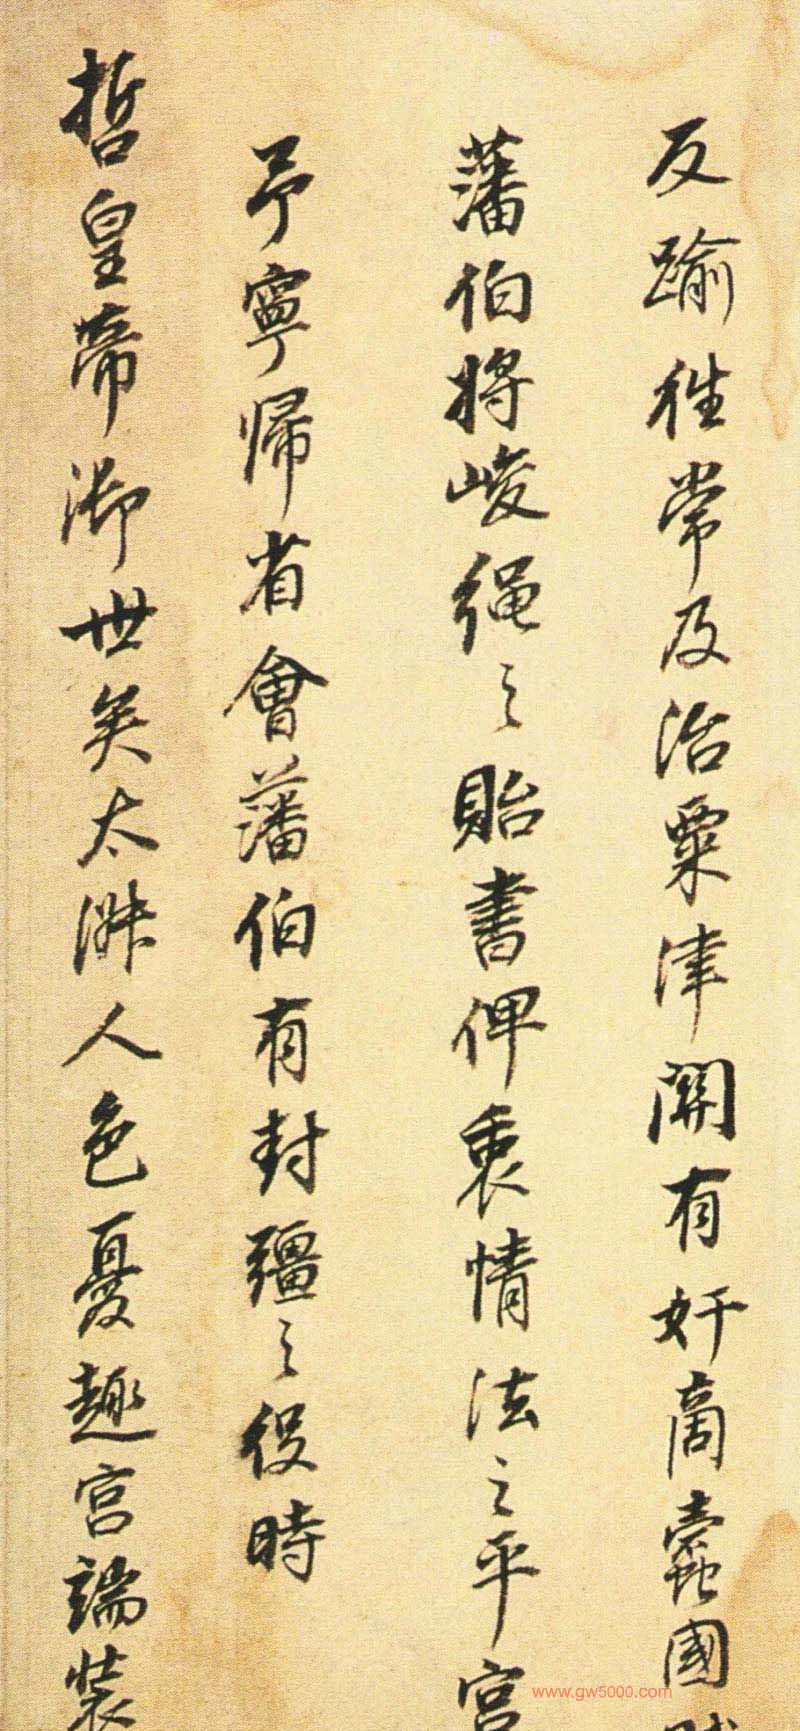 反踰往常及治粟津關有奸商蠹國
藩伯將峻繩之貽書俾衷情法之平宮
予寧歸省會藩伯有封疆之役時
哲皇帝御世矣太淑人色憂趣宮端裝
www.gw5000.com